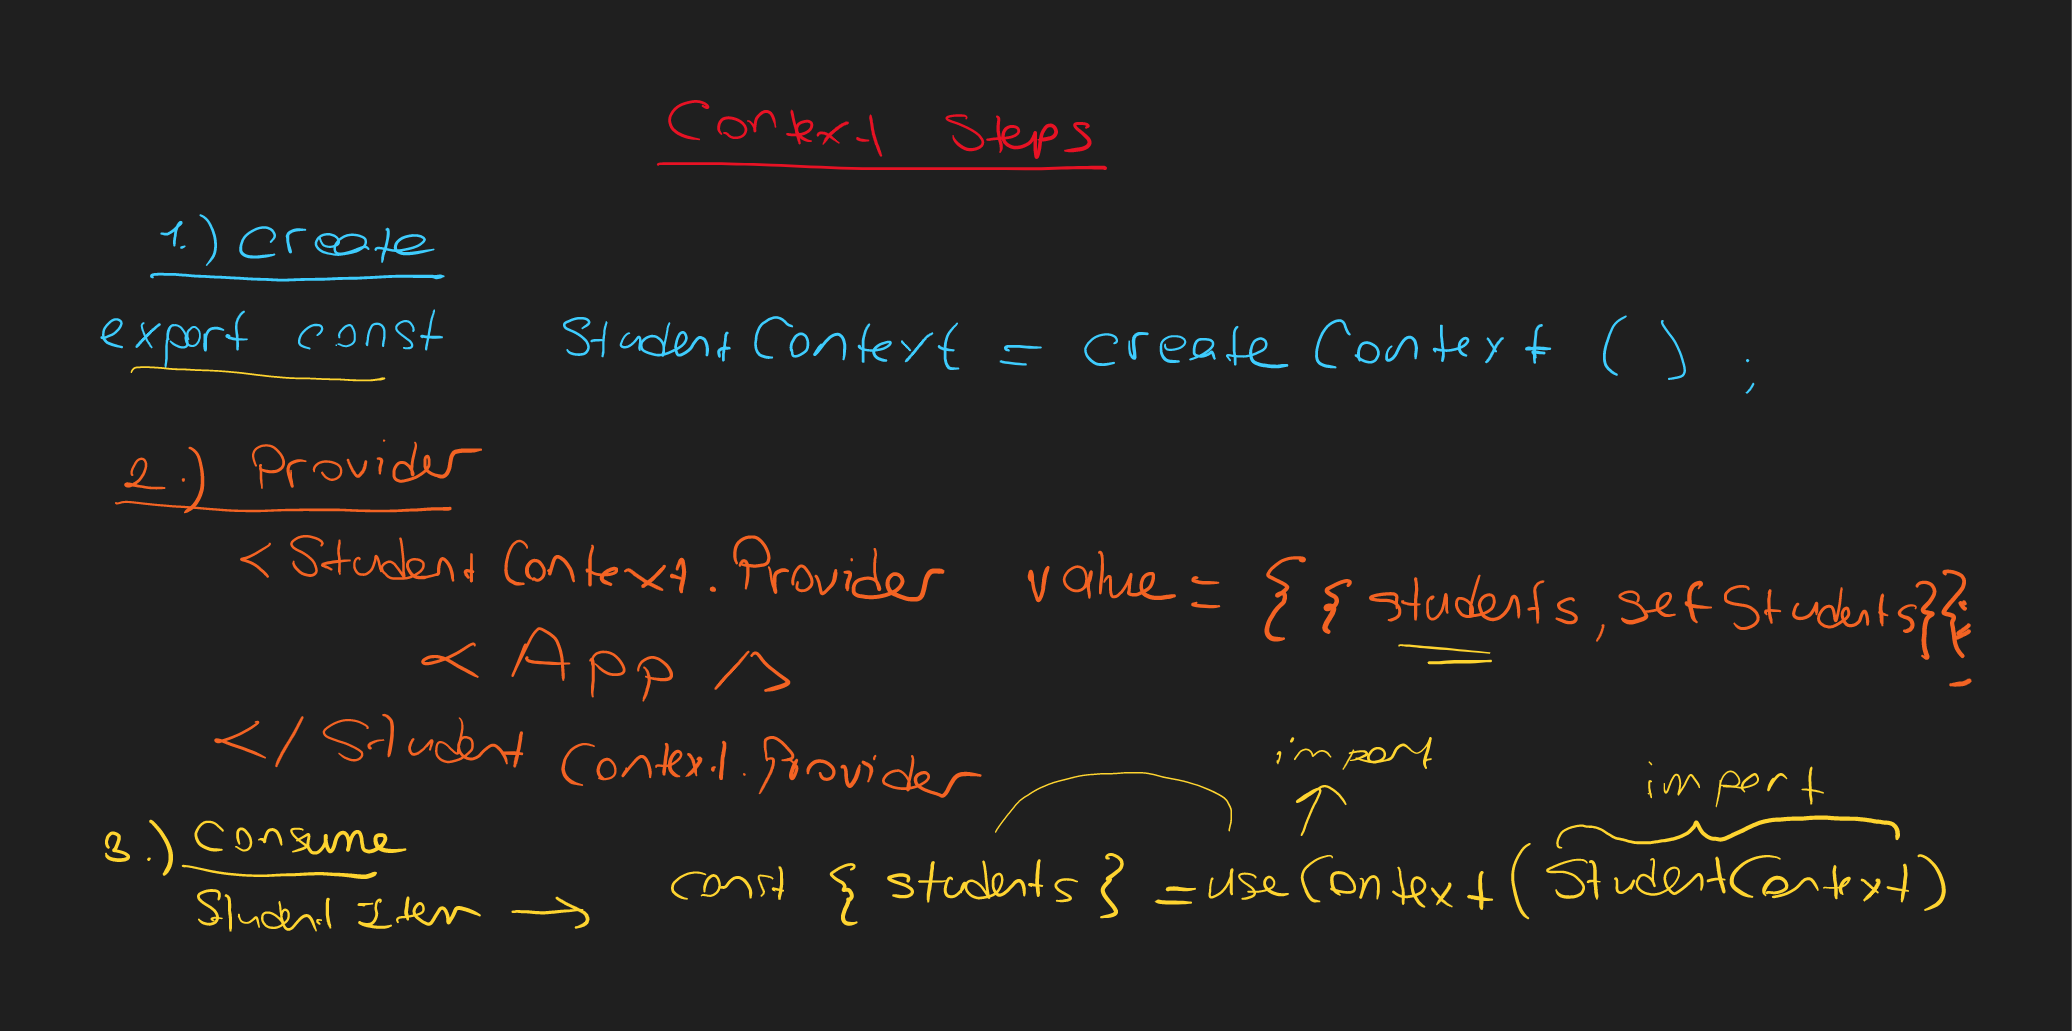 Context Steps
1.) Create
export const StudentContext = createContext () ;
2.) Provider
<StudentContext.Provider value = { { students, setStudents}}
<App />
</ Student Context.Provider
import
import
3.) Consume
const { students } = useContext (StudentContext)
Student Item →